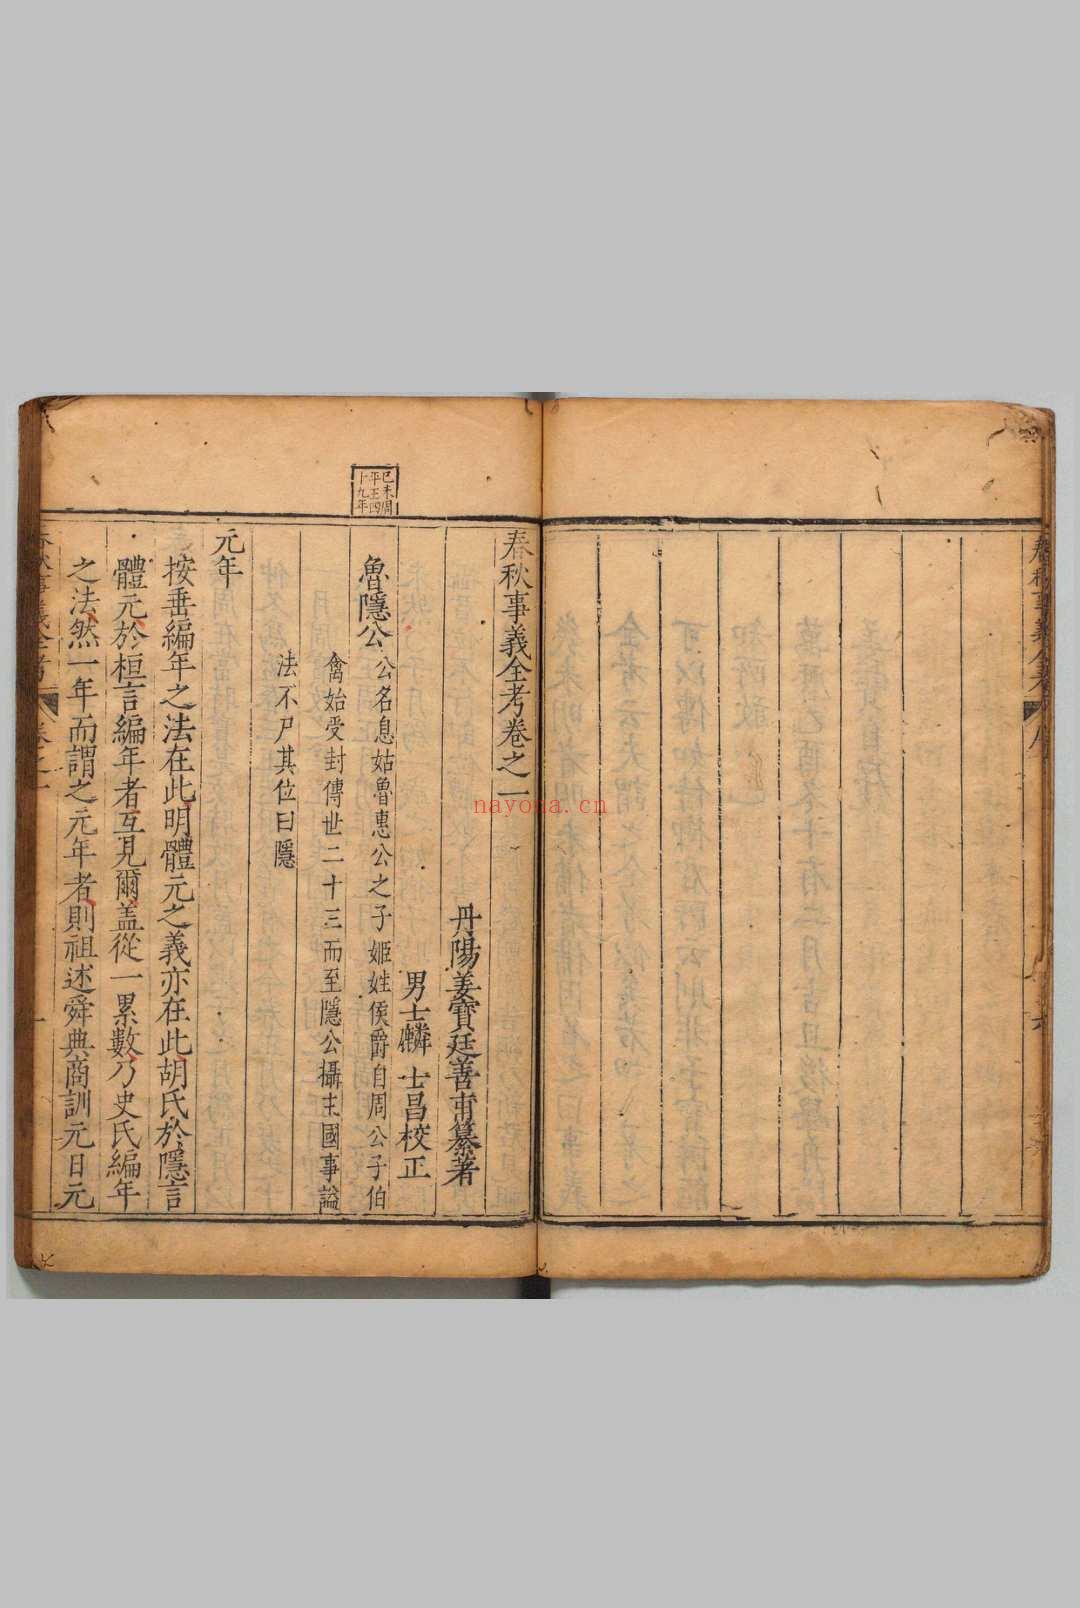 春秋事義全考卷之一
丹陽姜寶廷善甫纂著
男士麟 士昌校正
己未周
平王四
十九年
魯隱公 公名息姑魯惠公之子姬姓侯爵自周公子伯
禽始受封傳世二十三而至隱公攝主國事謚
法不尸其位曰隱
元年
按垂編年之法在此明體元之義亦在此胡氏於隱言
體元於桓言編年者互見爾盖從一累數乃史氏編年
之法然一年而謂之元年者則祖述舜典商訓元日元
春秋事義全考 卷之一 一
nayona.cn